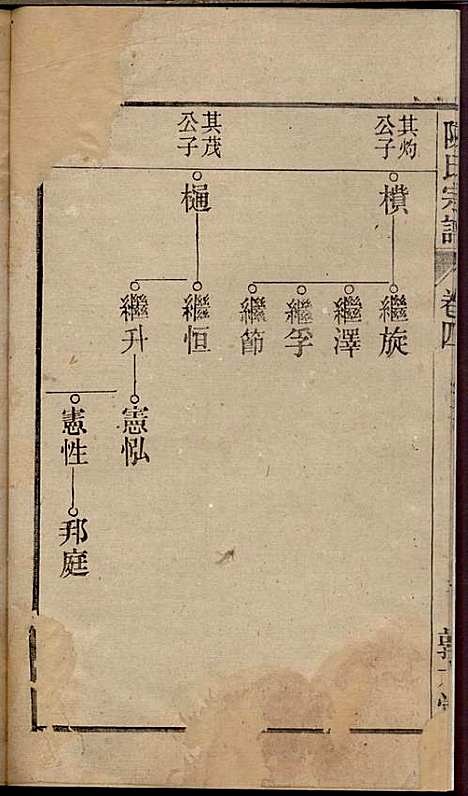 陳氏宗譜
卷四
其灼公子
橨
繼旋
繼澤
繼孚
繼節
其茂公子
樋
繼恒
繼升
憲泓
憲性
邦庭